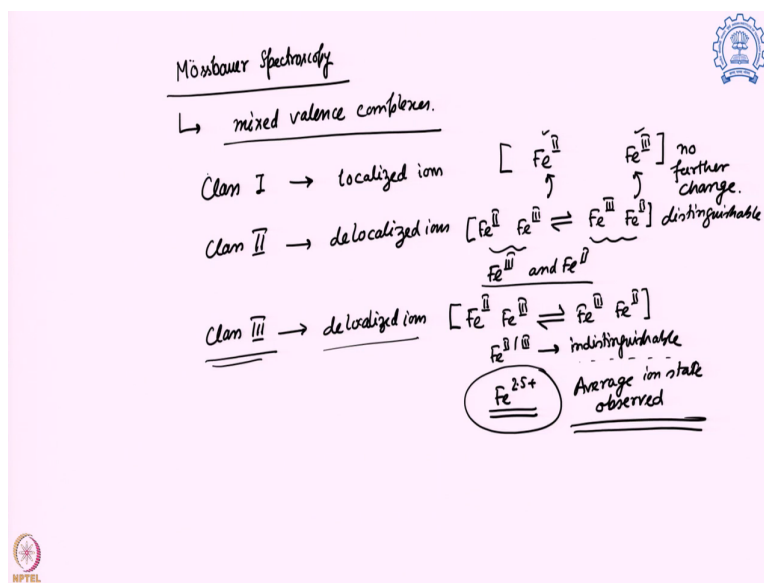 Mössbauer Spectroscopy
↳ mixed valence complexes.
Class I → localized ion [ Fe^II Fe^III ] no further change.
Class II → delocalized ions [Fe^II Fe^III ⇌ Fe^III Fe^II] distinguishable
Fe^III and Fe^II
Class III → delocalized ion [Fe^II Fe^III ⇌ Fe^III Fe^II]
Fe^II/III → indistinguishable
Fe^2.5+ Average ion state observed
NPTEL